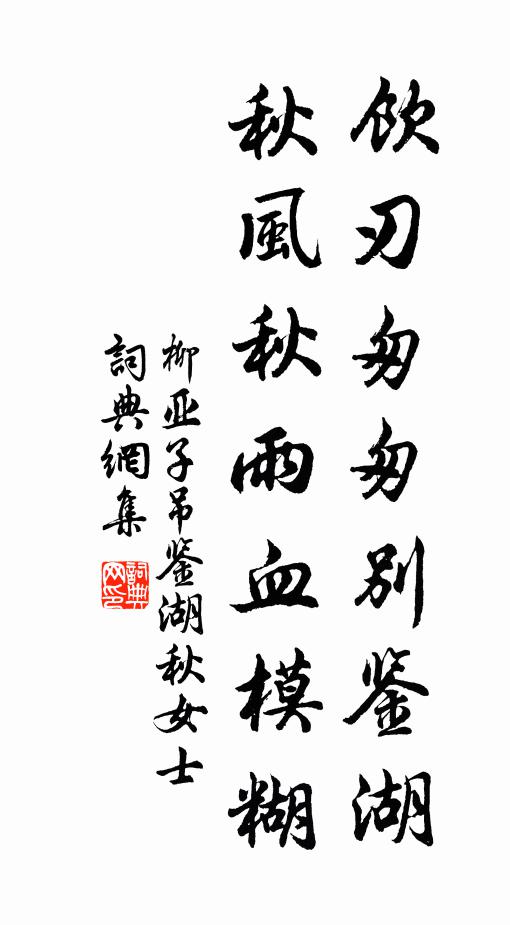 飲刃匆匆別鉴湖
秋風秋雨血模糊
柳亚子吊鉴湖秋女士
詞典網集
詞典
网印